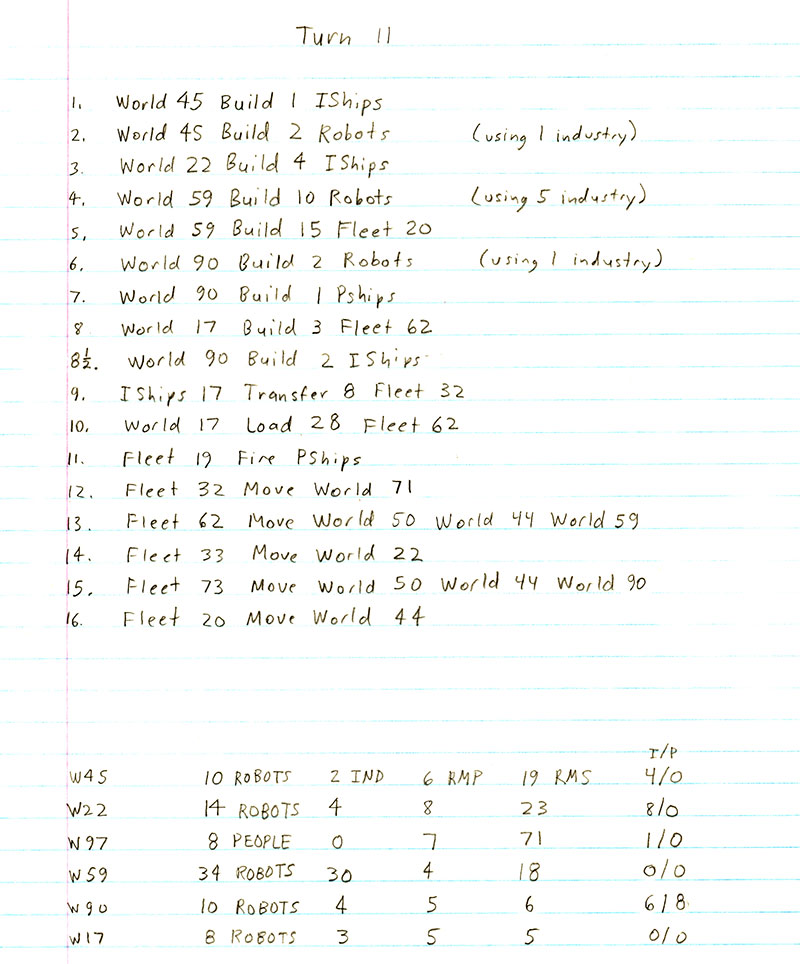 Turn 11
1. World 45 Build 1 IShips
2. World 45 Build 2 Robots (using 1 industry)
3. World 22 Build 4 IShips
4. World 59 Build 10 Robots (using 5 industry)
5. World 59 Build 15 Fleet 20
6. World 90 Build 2 Robots (using 1 industry)
7. World 90 Build 1 Pships
8 World 17 Build 3 Fleet 62
8½. World 90 Build 2 IShips
9. IShips 17 Transfer 8 Fleet 32
10. World 17 Load 28 Fleet 62
11. Fleet 19 Fire PShips
12. Fleet 32 Move World 71
13. Fleet 62 Move World 50 World 44 World 59
14. Fleet 33 Move World 22
15. Fleet 73 Move World 50 World 44 World 90
16. Fleet 20 Move World 44
I/P
W45 10 ROBOTS 2 IND 6 RMP 19 RMS 4/0
W22 14 ROBOTS 4 8 23 8/0
W97 8 PEOPLE 0 7 71 1/0
W59 34 ROBOTS 30 4 18 0/0
W90 10 ROBOTS 4 5 6 6/8
W17 8 ROBOTS 3 5 5 0/0